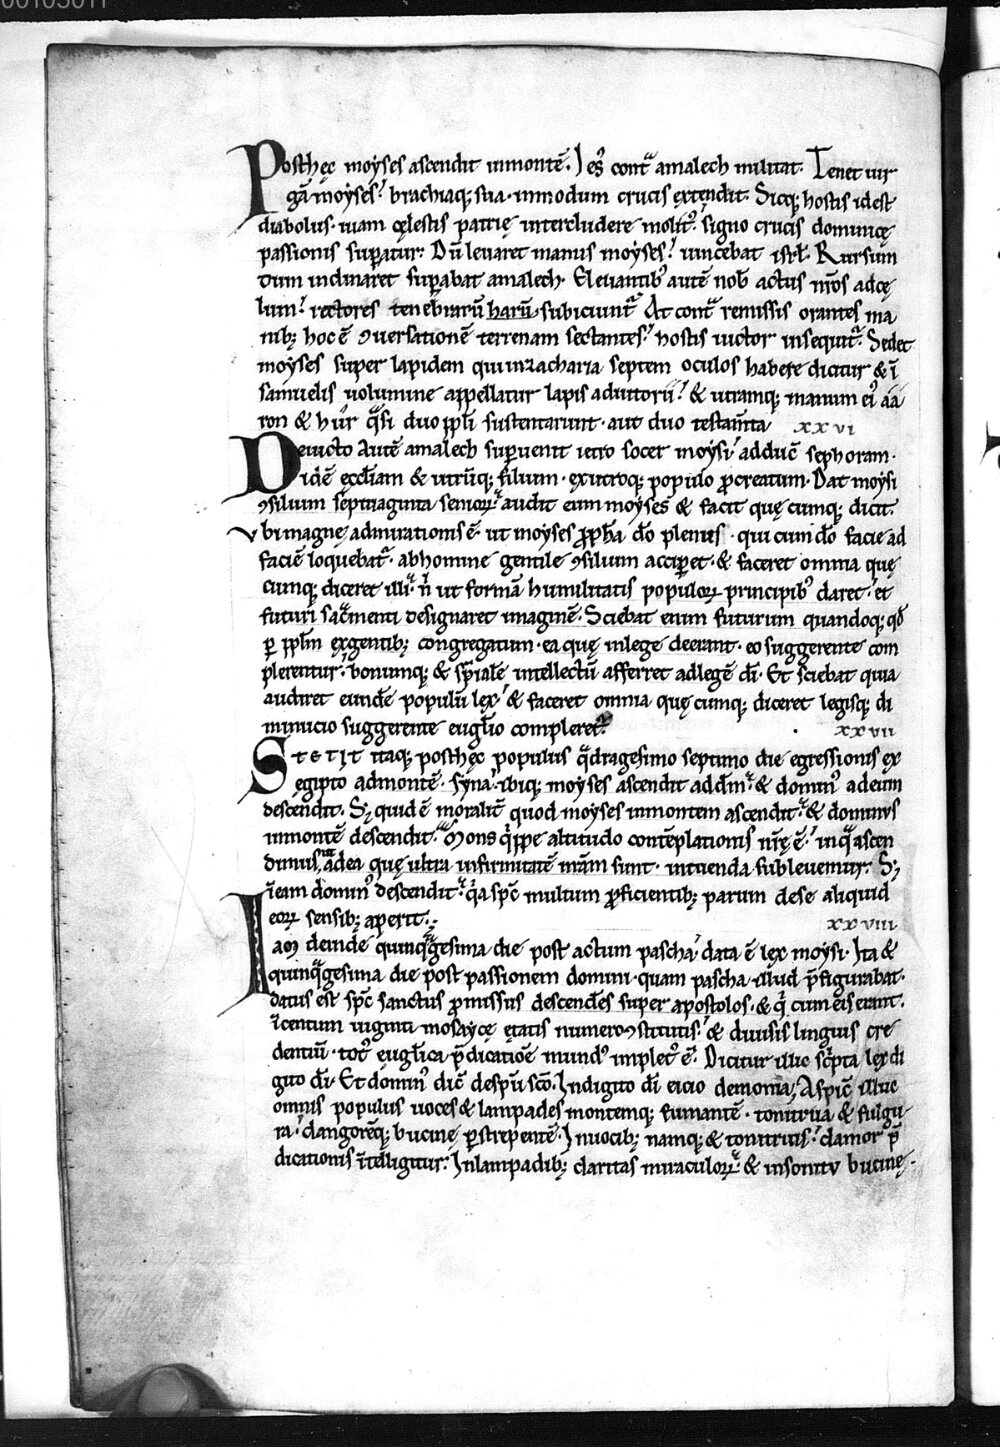 00103011
Posthęc moyses ascendit inmontē. Iesꝰ cont̄ amalech militat. Tenet uir
gā moyses. brachiaq; sua. inmodum crucis extendit. Sicq; hostis idest
diabolus. uiam cęlestis patrię intercludere molitꝰ. signo crucis dominicę
passionis suꝑatur. Dū leuaret manus moyses. uincebat isrł. Rursum
dum inclinaret suꝑabat amalech. Eleuantibꝰ autē nob̄ actus nr̄os adcę
lum. rectores tenebrarū harū subiciunt̄. At cont̄ remissis orantes ma
nib; hoc ē ꝯuersationē terrenam sectantes. hostis uictor insequit̄. Sedet
moyses super lapidem qui inzacharia septem oculos habere dicitur & ī
samuelis uolumine appellatur lapis adiutorii. & utramq; manum eiꝰ aa
ron & hur q̄si duo ppłi sustentarunt. aut duo testam̄ta xxvi
Deuicto autē amalech suꝑuenit ietro socer moysi adduc̄ sephoram.
Idē ecclīam & utrūq; filium. exutroq; populo ꝓcreatum. Dat moysi
ꝯsilium septuaginta senioꝝ. audit eum moyses & facit quę cumq; dicit.
Vbi magnę admirationis ē. ut moyses ꝓph̄a dō plenus. qui cum dō facie ad
faciē loquebat̄. abhomine gentile ꝯsilium acciꝑet. & faceret omnia quę
cumq; diceret illi. n̄ ut formā humilitatis populoꝝ principibꝰ daret. et
futuri sac̄menti designaret imaginē. Sciebat enim futurum quandoq; qd̄
ꝑ ppłm exgentib; congregatum. ea quę inlege deerant. eo suggerente com
plerentur. bonumq; & sp̄iale intellectū afferret adlegē dī. Et sciebat quia
audiret eundē populū lex. & faceret omnia quę cumq; diceret legisq; di
minucio suggerente eugłio compleret̄. xxvii
STETIT itaq; posthęc populus q̄dragesimo septimo die egressionis ex
egipto admontē. syna. ibiq; moyses ascendit addm̄. & dominꝰ adeum
descendit. S; quid ē moralit̄ quod moyses inmontem ascendit. & dominus
inmontē descendit. Mons q̄ppe altitudo contēplationis nr̄ę ē. inq̄ ascen
dimus. adea quę ultra infirmitatē nr̄am sunt. intuenda subleuemur. S;
ineam dominꝰ descendit. q̄a sp̄c multum ꝓficientib; parum dese aliquid
eoꝝ sensib; aperit. xxviii
Iam deinde quinq̄gesima die post actum pascha. data ē lex moysi. Ita &
quinq̄gesima die post passionem domini. quam pascha illud p̄figurabat.
datus est sp̄c sanctus ꝓmissus descendēs super apostolos. & q̄ cum eis erant.
īcentum uiginti mosaycę ętatis numero ꝯstitutis. & diuisis linguis cre
dentiū. totꝰ eugłica p̄dicatiōe mundꝰ impletꝰ ē. Dicitur illic sc̄pta lex di
gito dī. Et dominꝰ dic̄ despū scō. Indigito dī eicio demonia; Aspic̄ illic
omnis populus uoces & lampades montemq; fumantē. tonitrua & fulgu
ra. clangorēq; bucinę ꝑstrepentē. Inuocib; namq; & tonitruis. clamor p̄
dicationis ītelligitur. Inlampadib; claritas miraculoꝝ. & insonitu bucinę.